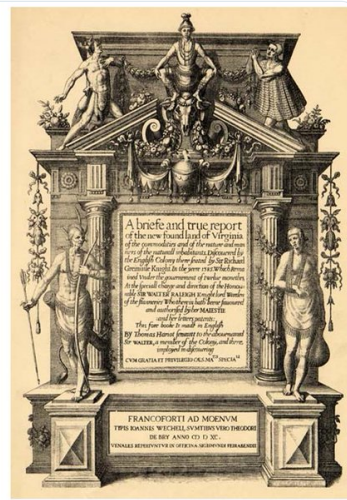 A briefe and true report
of the new found land of Virginia
of the commodities and of the nature and man
ners of the naturall inhabitants. Discouered by
the English Colony there seated by Sir Richard
Greinuile Knight In the yeere 1585. Which Remai
ned Vnder the gouernement of twelue monethes,
At the speciall charge and direction of the Honou-
rable SIR WALTER RALEIGH Knight lord Warden
of the stanneries Who therein hath beene fauoured
and authorised by her MAIESTIE
and her letters patents:
This fore booke Is made in English
By Thomas Hariot seruant to the abouenamed
Sir WALTER, a member of the Colony, and there
imployed in discouering
CVM GRATIA ET PRIVILEGIO CÆS. MA.TIS SPECIALI
FRANCOFORTI AD MOENVM
TYPIS IOANNIS WECHELI, SVMTIBVS VERO THEODORI
DE BRY ANNO CIↃ IↃ XC.
VENALES REPERIVNTVR IN OFFICINA SIGISMVNDI FEIRABENDII